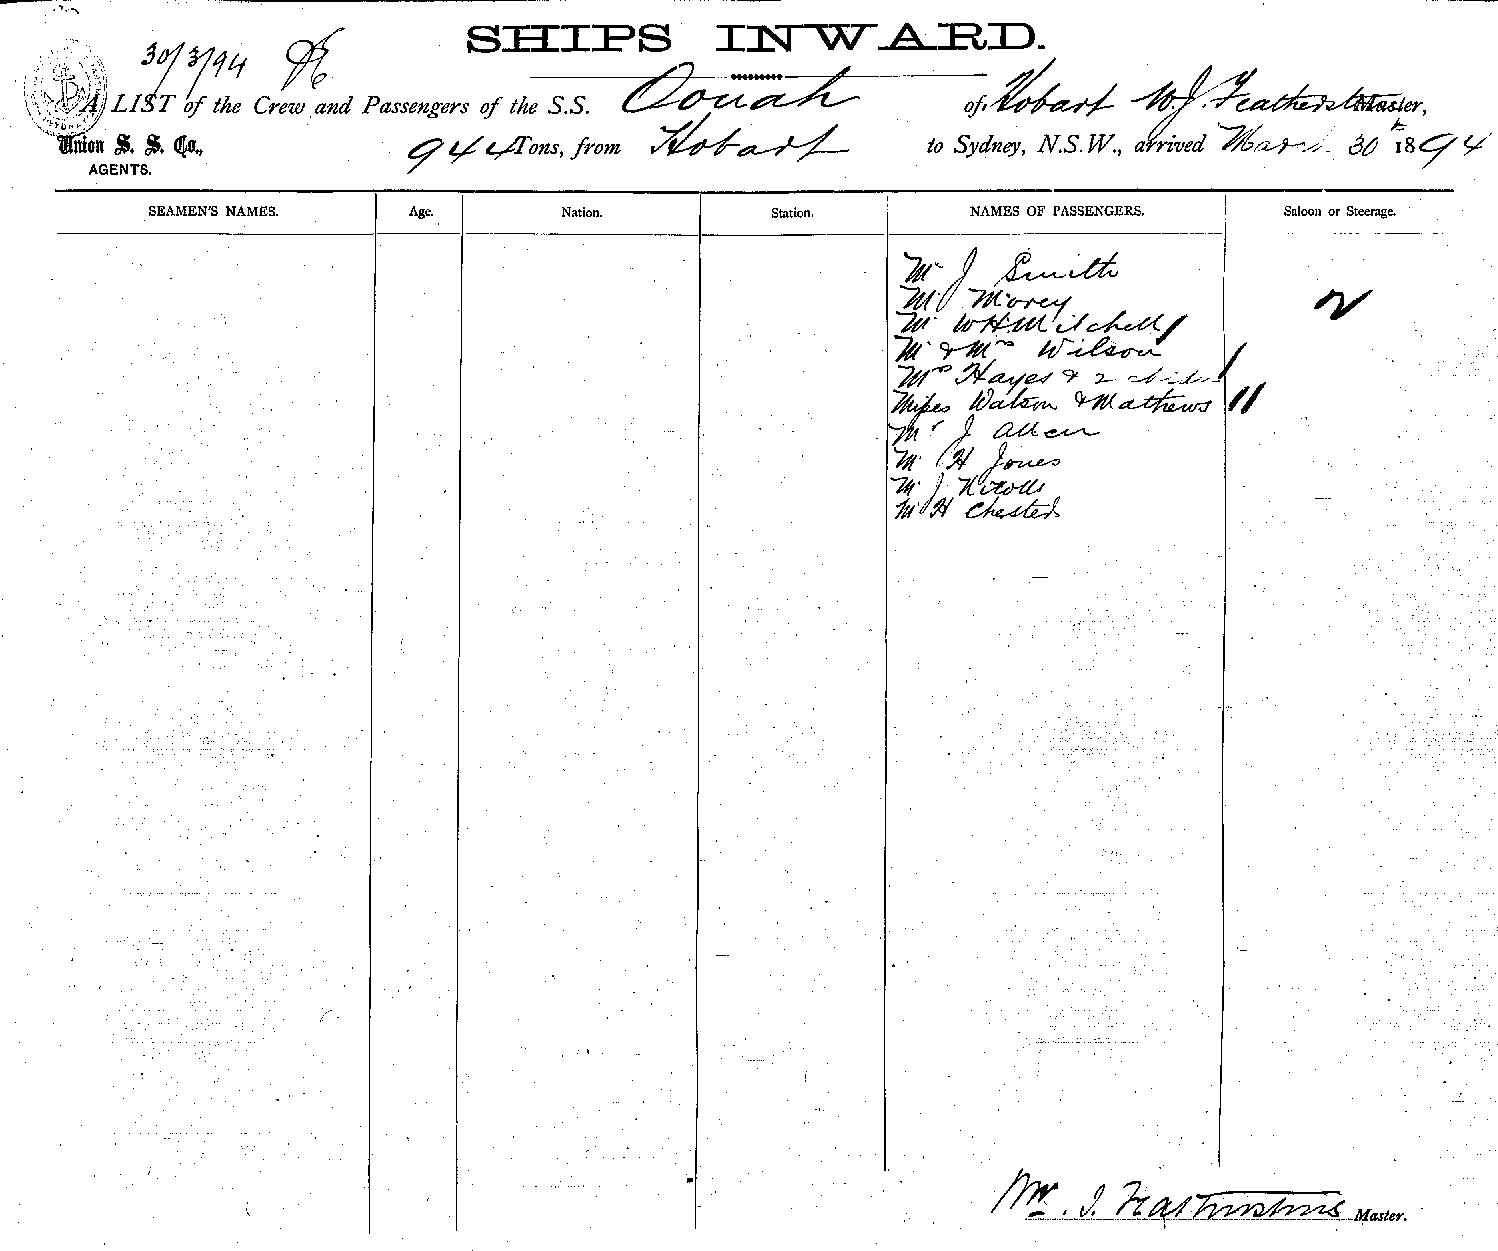 30/3/94
SHIPS INWARD.
A LIST of the Crew and Passengers of the S.S. Oonah of Hobart W. J. Featherstone Master,
Union S. S. Co., 944 Tons, from Hobart to Sydney, N.S.W., arrived March 30th 1894
AGENTS.
SEAMEN'S NAMES. Age. Nation. Station. NAMES OF PASSENGERS. Saloon or Steerage.
Mr J Smith
Mr Morey
Mr W H Mitchell
Mr & Mrs Wilson
Mrs Hayes & 2 children
Misses Watson & Mathews
Mr J Allen
Mr H Jones
Mr J Nicolls
Mr H Chested
Wm. J. Featherstone Master.